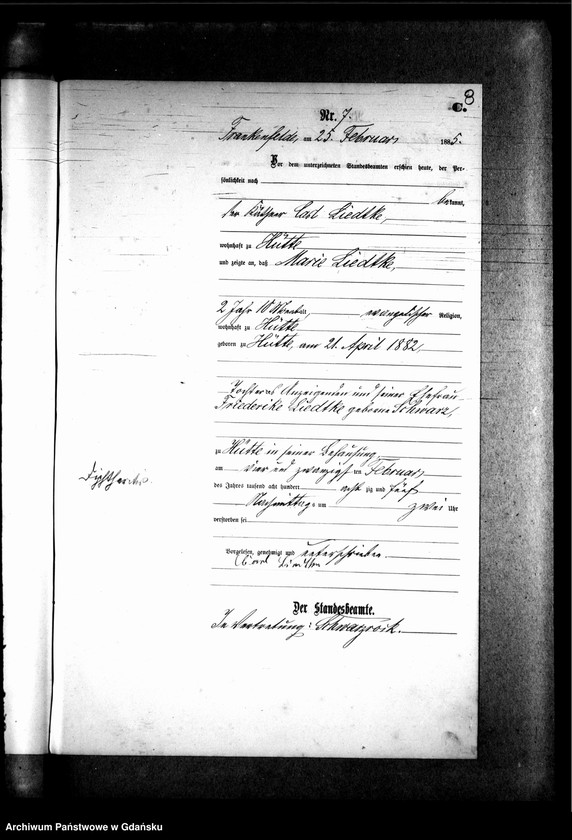 8
C.
Nr. 7.
Frankenfelde, am 25. Februar 1885.
Vor dem unterzeichneten Standesbeamten erschien heute, der Per-
sönlichkeit nach
bekannt,
der Käthner Carl Liedtke,
wohnhaft zu Hütte
und zeigte an, daß Marie Liedtke,
2 Jahr 10 Monat alt, evangelischer Religion,
wohnhaft zu Hütte
geboren zu Hütte, am 21. April 1882,
Tochter des Anzeigenden und seiner Ehefrau
Friederike Liedtke geborne Schwarz,
zu Hütte in seiner Behausung,
am vier und zwanzigsten Februar
des Jahres tausend acht hundert acht zig und fünf
Nachmittags um zwei Uhr
verstorben sei
Diphtheritis.
Vorgelesen, genehmigt und unterschrieben
Carl
Der Standesbeamte.
In Vertretung: Schwarzrock.
Archiwum Państwowe w Gdańsku